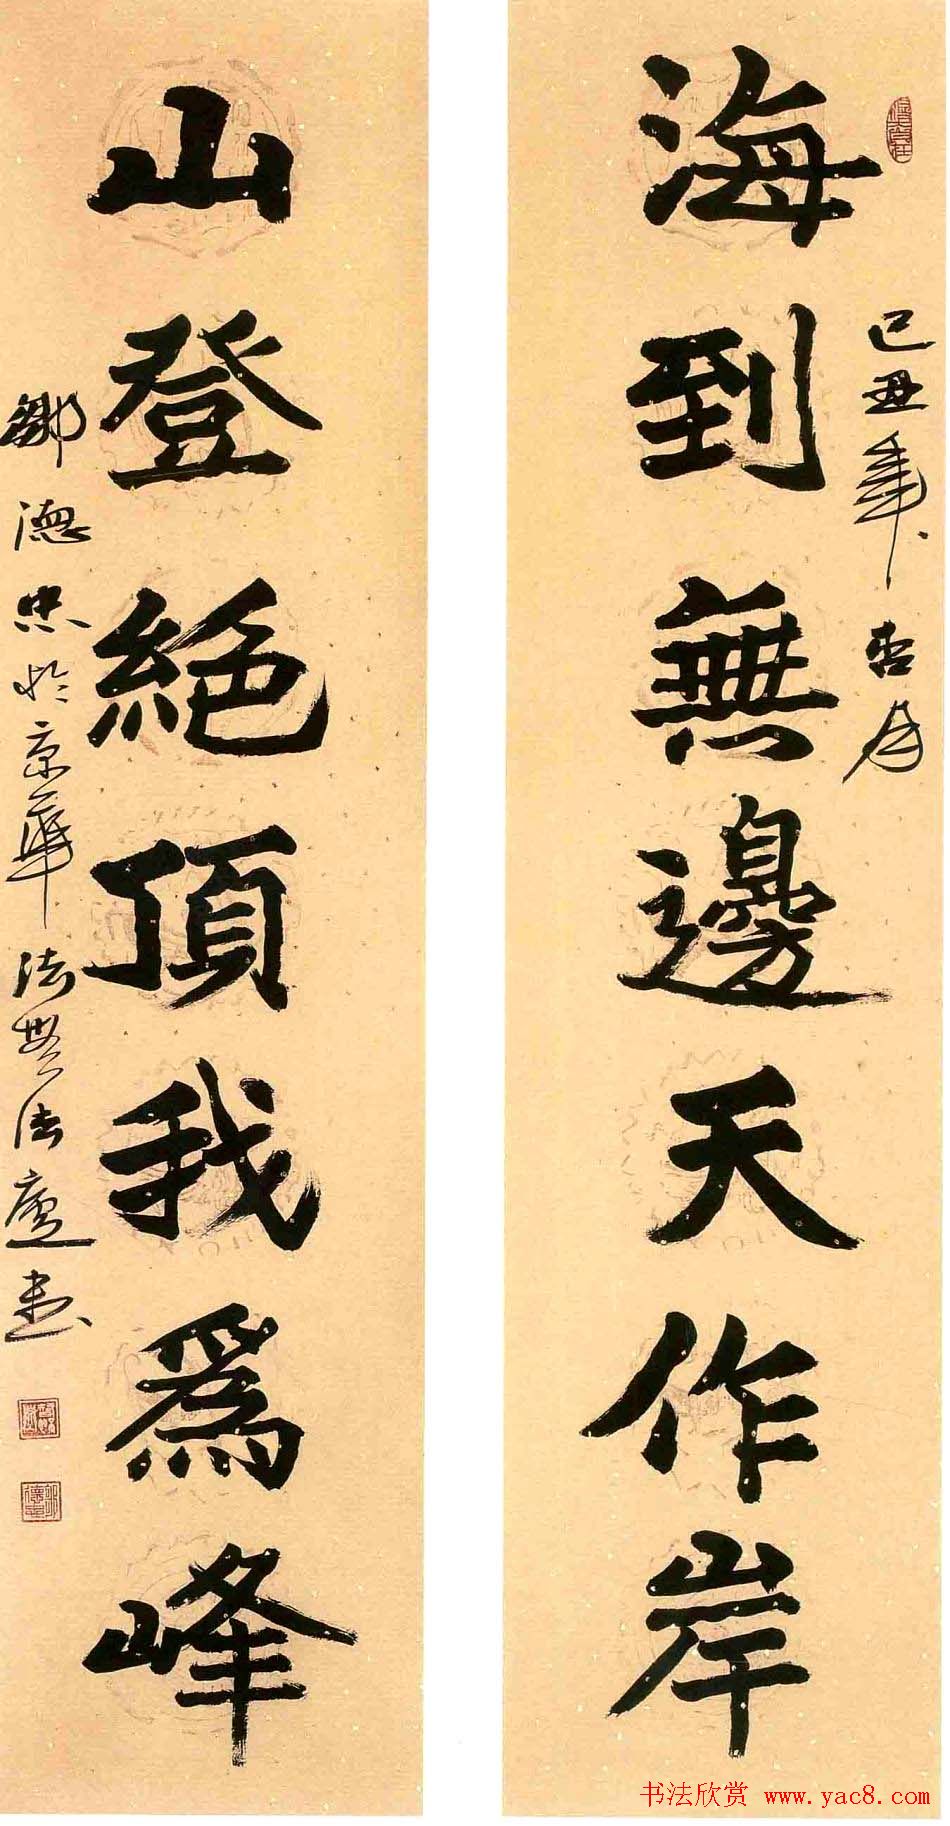 海到無邊天作岸
己丑年杏月
山登絕頂我為峰
鄒德忠於京華法無法廬書
书法欣赏 www.yac8.com